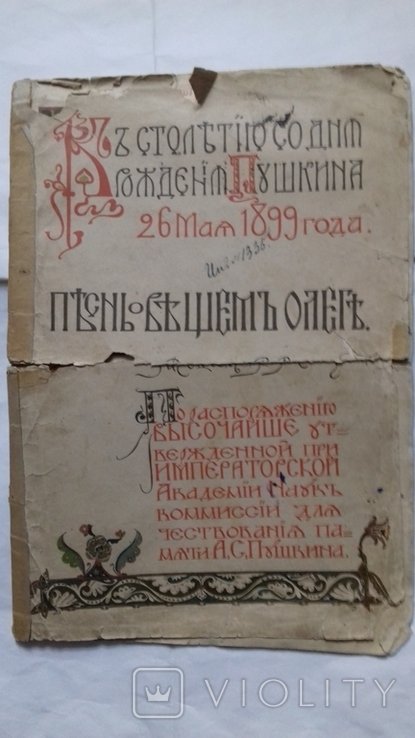 Къ столѣтію со дня
рожденія Пушкина
26 Мая 1899 года.
Инв. № 1336
Пѣснь о вѣщемъ Олегѣ.
По распоряженію
ВЫСОЧАЙШЕ ут-
вержденной при
ИМПЕРАТОРСКОЙ
Академіи Наукъ
коммиссіи для
чествованія па-
мяти А.С. Пушкина.
VIOLITY